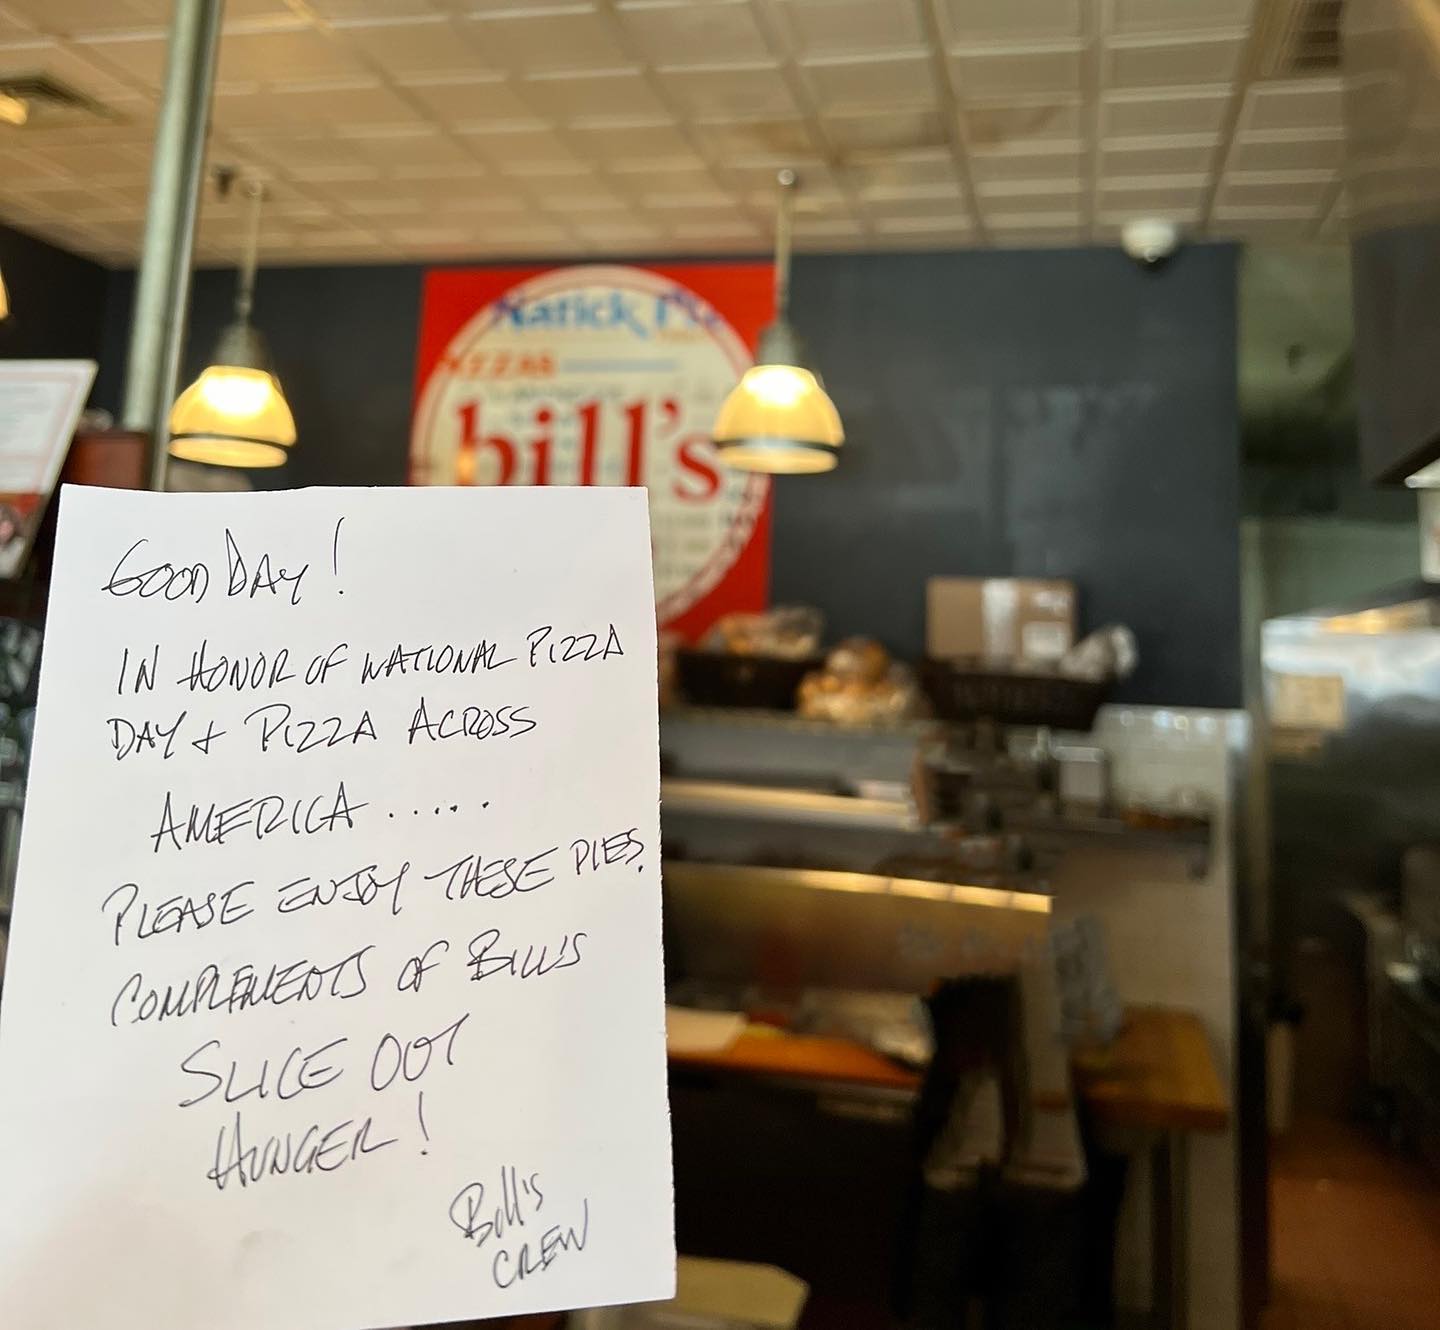 Natick
bill's
GOOD DAY!
IN HONOR OF NATIONAL PIZZA
DAY + PIZZA ACROSS
AMERICA.....
PLEASE ENJOY THESE PIES.
COMPLEMENTS OF BILL'S
SLICE OUT
HUNGER!
Bill's
CREW